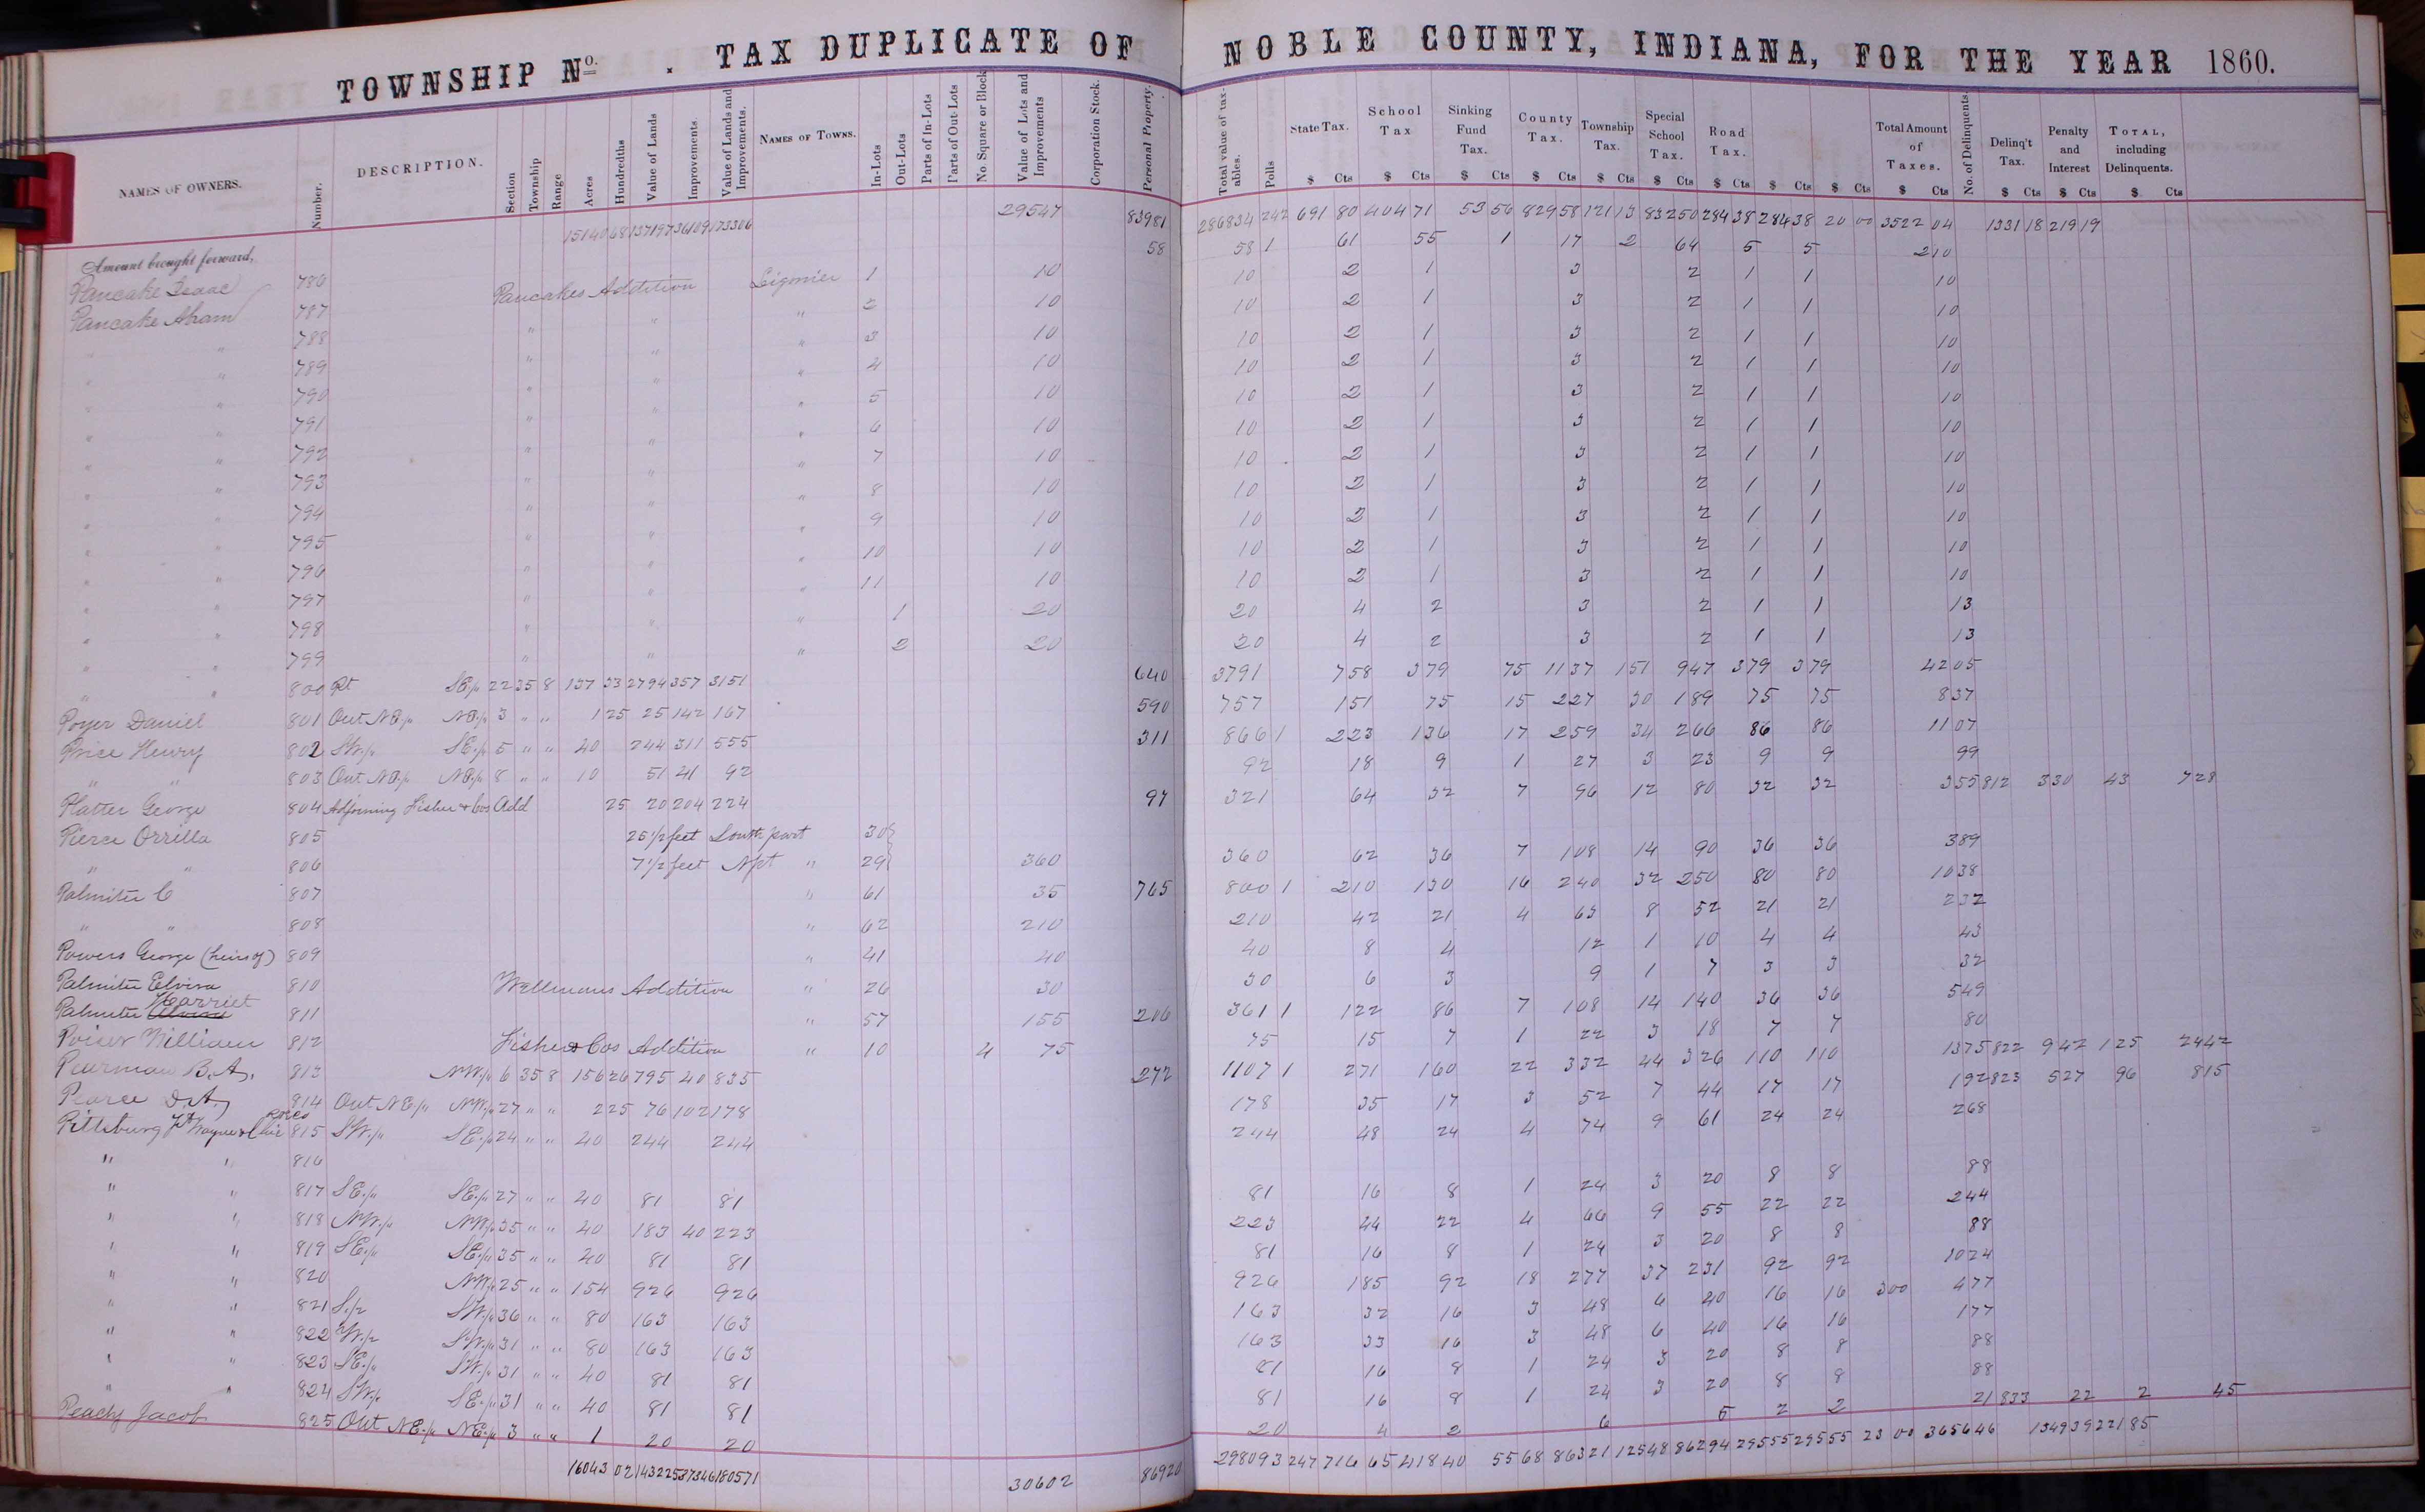 TOWNSHIP No. . TAX DUPLICATE OF NOBLE COUNTY, INDIANA, FOR THE YEAR 1860.
NAMES OF OWNERS. Number. DESCRIPTION. Section Township Range Acres Hundredths Value of Lands Improvements Value of Lands and Improvements. NAMES OF TOWNS. In-Lots Out-Lots Parts of In-Lots Parts of Out-Lots No Square or Block Value of Lots and Improvements Corporation Stock. Personal Property. Total value of taxables. Polls State Tax. School Tax Sinking Fund Tax. County Tax. Township Tax. Special School Tax. Road Tax. Total Amount of Taxes. No. of Delinquents. Delinq't Tax. Penalty and Interest TOTAL, including Delinquents.
$ Cts $ Cts $ Cts $ Cts $ Cts $ Cts $ Cts $ Cts $ Cts $ Cts $ Cts $ Cts $ Cts
Amount brought forward, 15140 68 137197 36109 173306 29547 83981 286834 242 691 80 404 71 53 56 829 58 121 13 832 50 284 38 284 38 20 00 3522 04 1331 18 219 19
Pancake Isaac 786 58 58 1 61 55 1 17 2 64 5 5 210
Pancake Abram 787 Pancakes Addition Ligonier 1 10 10 2 1 3 2 1 1 10
" " 788 " " " 2 10 10 2 1 3 2 1 1 10
" " 789 " " " 3 10 10 2 1 3 2 1 1 10
" " 790 " " " 4 10 10 2 1 3 2 1 1 10
" " 791 " " " 5 10 10 2 1 3 2 1 1 10
" " 792 " " " 6 10 10 2 1 3 2 1 1 10
" " 793 " " " 7 10 10 2 1 3 2 1 1 10
" " 794 " " " 8 10 10 2 1 3 2 1 1 10
" " 795 " " " 9 10 10 2 1 3 2 1 1 10
" " 796 " " " 10 10 10 2 1 3 2 1 1 10
" " 797 " " " 11 10 10 2 1 3 2 1 1 10
" " 798 " " " 1 20 20 4 2 3 2 1 1 13
" " 799 " " " 2 20 20 4 2 3 2 1 1 13
" " 800 Pt SE/4 22 35 8 137 33 2794 357 3151 640 3791 758 379 75 1137 151 947 379 379 4205
Poyer Daniel 801 Out NE/4 NE/4 3 " " 1 25 25 142 167 590 757 151 75 15 227 30 189 75 75 837
Price Henry 802 SW/4 SE/4 5 " " 40 244 311 555 311 866 1 223 136 17 259 34 266 86 86 1107
" " 803 Out NE/4 NE/4 8 " " 10 51 41 92 92 18 9 1 27 3 23 9 9 99
Platter George 804 Adjoining Fisher & Cos Add 25 20 204 224 97 321 64 32 7 96 12 80 32 32 355 812 330 43 728
Pierce Orrilla 805 25 1/2 feet South part 30
" " 806 7 1/2 feet N pt " 29 360 360 62 36 7 108 14 90 36 36 389
Palmiter C 807 " 61 35 765 800 1 210 130 16 240 32 250 80 80 1038
" " 808 " 62 210 210 42 21 4 63 8 52 21 21 232
Powers George (heirs of) 809 " 41 40 40 8 4 12 1 10 4 4 43
Palmiter Elvira 810 Wellmans Addition " 26 30 30 6 3 9 1 7 3 3 32
Palmiter Harriet 811 " 57 155 206 361 1 122 86 7 108 14 140 36 36 549
Poiser William 812 Fisher & Cos Addition " 10 4 75 75 15 7 1 22 3 18 7 7 80
Pearman B. A. 813 NW/4 6 35 8 156 26 795 40 835 272 1107 1 271 160 22 332 44 326 110 110 1375 822 942 125 2442
Pearce D. A. 814 Out NE/4 NW/4 27 " " 2 25 76 102 178 178 35 17 3 52 7 44 17 17 192 823 527 96 815
Pittsburg Ft Wayne & Chic 815 SW/4 SE/4 24 " " 40 244 244 244 48 24 4 74 9 61 24 24 268
" " 816
" " 817 SE/4 SE/4 27 " " 40 81 81 81 16 8 1 24 3 20 8 8 88
" " 818 NW/4 NW/4 35 " " 40 183 40 223 223 44 22 4 66 9 55 22 22 244
" " 819 SE/4 SE/4 35 " " 40 81 81 81 16 8 1 24 3 20 8 8 88
" " 820 NW/4 25 " " 154 926 926 926 185 92 18 277 37 231 92 92 1024
" " 821 S/2 SW/4 36 " " 80 163 163 163 32 16 3 48 6 40 16 16 300 477
" " 822 W/2 SW/4 31 " " 80 163 163 163 33 16 3 48 6 40 16 16 177
" " 823 SE/4 SW/4 31 " " 40 81 81 81 16 8 1 24 3 20 8 8 88
" " 824 SW/4 SE/4 31 " " 40 81 81 81 16 8 1 24 3 20 8 8 88
Peachy Jacob 825 Out NE/4 NE/4 3 " " 1 20 20 20 4 2 6 5 2 2 21 833 22 2 45
16043 02 143225 37346 180571 30602 86920 298093 247 716 65 418 40 55 68 863 21 125 48 862 94 295 55 295 55 23 00 3656 46 1349 39 221 85